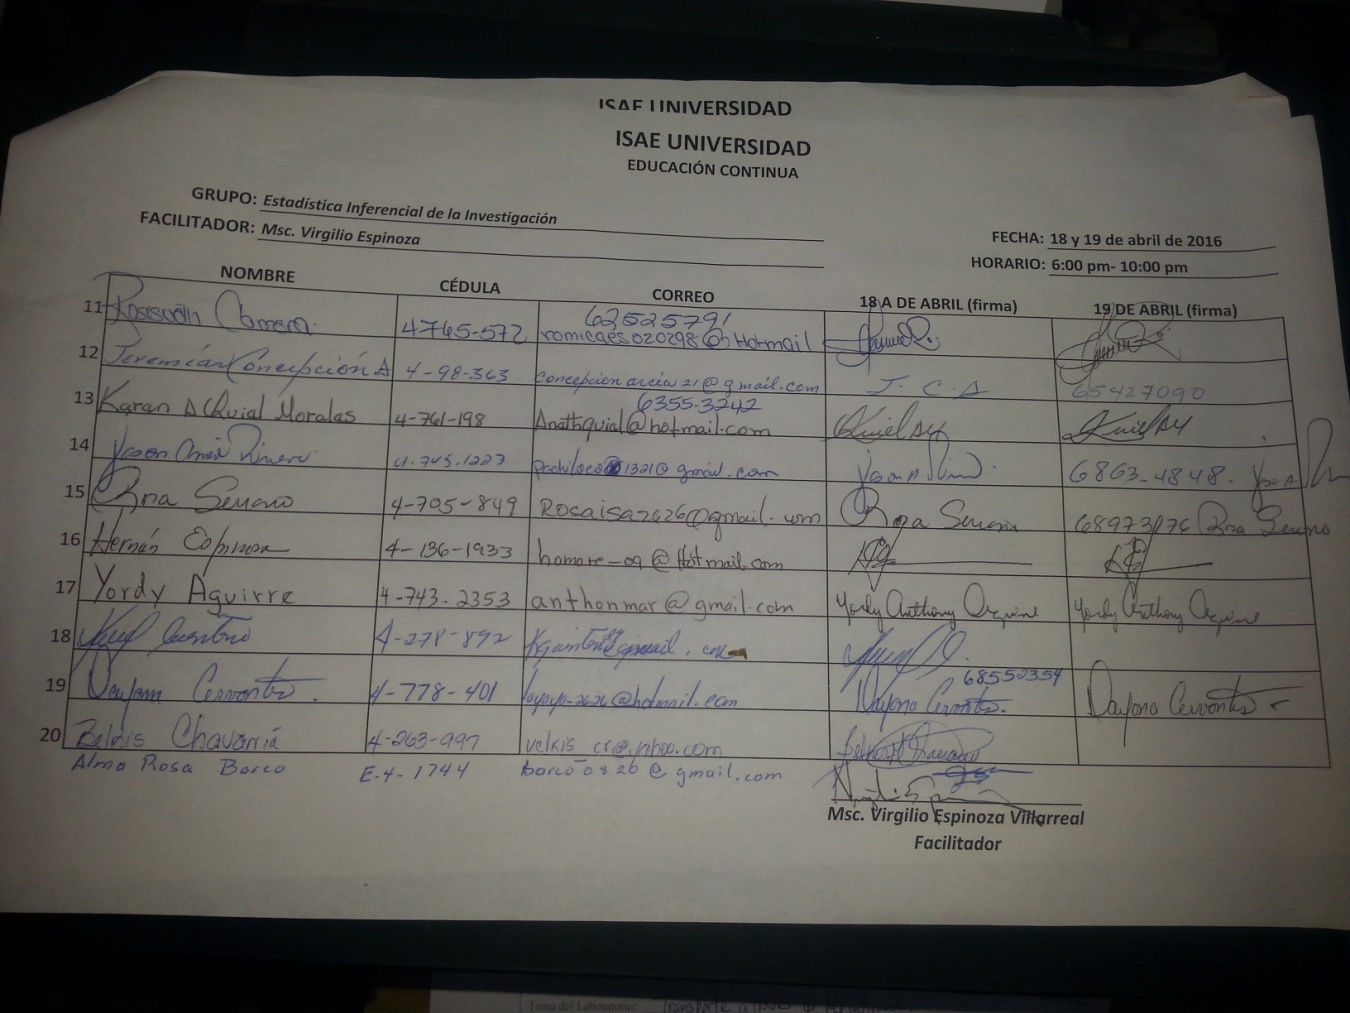 ISAE UNIVERSIDAD
ISAE UNIVERSIDAD
EDUCACIÓN CONTINUA
GRUPO: Estadística Inferencial de la Investigación
FACILITADOR: Msc. Virgilio Espinoza
FECHA: 18 y 19 de abril de 2016
HORARIO: 6:00 pm- 10:00 pm
NOMBRE CÉDULA CORREO 18 A DE ABRIL (firma) 19 DE ABRIL (firma)
62525791
11 4765-572 romicaes020298@Hotmail
12 Jeremías Concepción A 4-98-363 concepcion arcia 21@gmail.com J. C. A 65427090
6355-3242
13 Karan A Quial Moralas 4-761-198 Anathquial@hotmail.com
14 4-745-1227 gmail.com 6863-4848.
15 Rosa Serrano 4-705-849 Rosaisa2626@gmail.com Rosa Serrano 68973176 Rosa Serrano
16 Hernán Espinosa 4-136-1933 homare-09@Hotmail.com
17 Yordy Aguirre 4-743-2353 anthonmar@gmail.com Yordy Anthony Aguirre Yordy Anthony Aguirre
18 4-278-892
68552354
19 Dayana Cervantes. 4-778-401 @hotmail.com Dayana Cervantes. Dayana Cervantes
20 Belkis Chavarría 4-263-997 velkis_cr@yahoo.com
Alma Rosa Barco E-4-1744 barco-0820@gmail.com
Msc. Virgilio Espinoza Villarreal
Facilitador
Tema del Laboratorio: